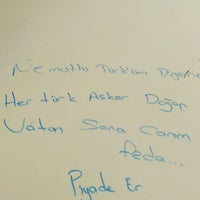 Ne mutlu Türküm Diyene
Her türk Asker Doğar.
Vatan Sana Canım
feda...
Piyade Er.